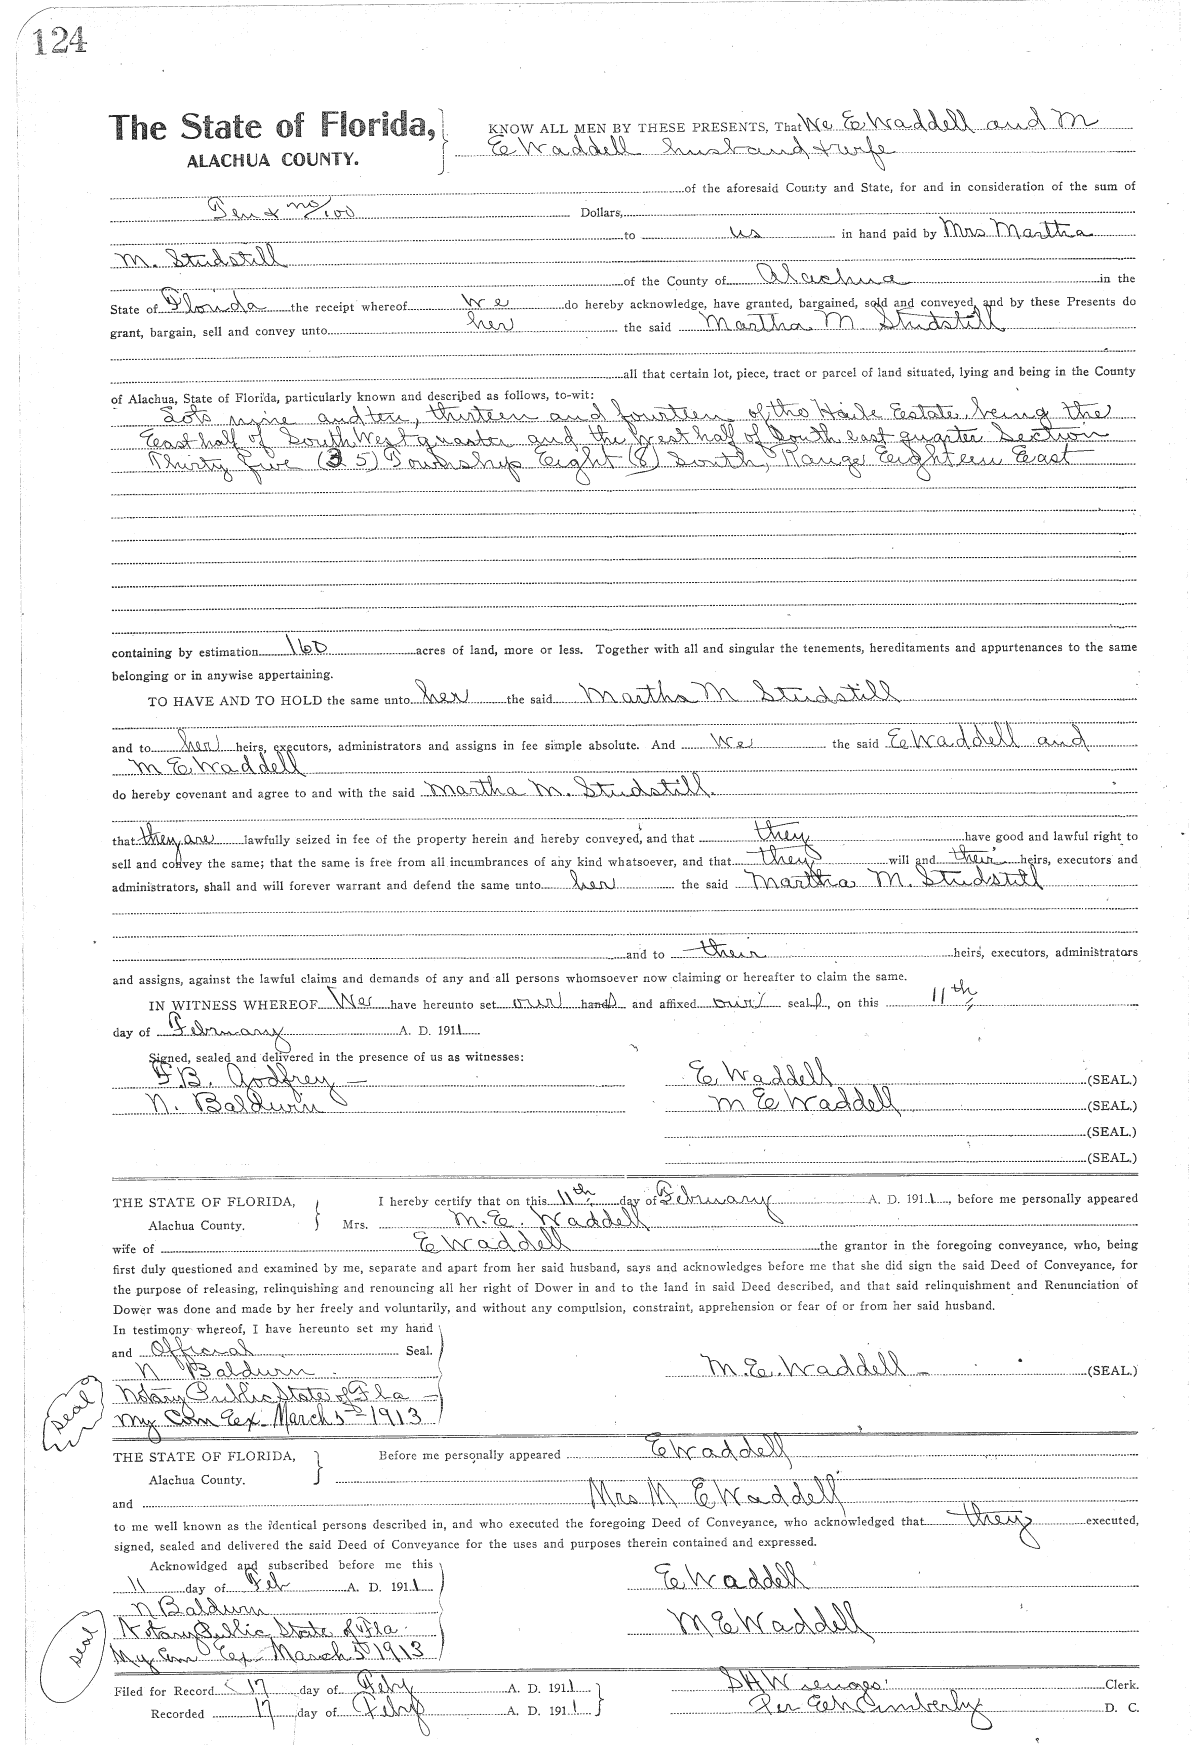 124
The State of Florida, KNOW ALL MEN BY THESE PRESENTS, That We E Waddell and M
ALACHUA COUNTY. E Waddell husband & wife
of the aforesaid County and State, for and in consideration of the sum of
Ten & no/100 Dollars,
to us in hand paid by Mrs Martha
M. Studstill
of the County of Alachua in the
State of Florida the receipt whereof we do hereby acknowledge, have granted, bargained, sold and conveyed, and by these Presents do
grant, bargain, sell and convey unto her the said Martha M. Studstill
all that certain lot, piece, tract or parcel of land situated, lying and being in the County
of Alachua, State of Florida, particularly known and described as follows, to-wit:
Lots nine and ten, thirteen and fourteen of the Haile Estate, being the
East half of South West quarter and the West half of South east quarter Section
Thirty five (35) Township Eight (8) South, Range Eighteen East
containing by estimation 160 acres of land, more or less. Together with all and singular the tenements, hereditaments and appurtenances to the same
belonging or in anywise appertaining.
TO HAVE AND TO HOLD the same unto her the said Martha M Studstill
and to her heirs, executors, administrators and assigns in fee simple absolute. And We the said E Waddell and
M E Waddell
do hereby covenant and agree to and with the said Martha M. Studstill.
that they are lawfully seized in fee of the property herein and hereby conveyed, and that they have good and lawful right to
sell and convey the same; that the same is free from all incumbrances of any kind whatsoever, and that they will and their heirs, executors and
administrators, shall and will forever warrant and defend the same unto her the said Martha M. Studstill
and to their heirs, executors, administrators
and assigns, against the lawful claims and demands of any and all persons whomsoever now claiming or hereafter to claim the same.
IN WITNESS WHEREOF We have hereunto set our hands and affixed our seals, on this 11th
day of February A. D. 1911
Signed, sealed and delivered in the presence of us as witnesses:
F B. Godfrey E Waddell (SEAL.)
N. Baldwin M E Waddell (SEAL.)
(SEAL.)
(SEAL.)
THE STATE OF FLORIDA, I hereby certify that on this 11th day of February A. D. 1911, before me personally appeared
Alachua County. Mrs. M. E. Waddell
wife of E Waddell the grantor in the foregoing conveyance, who, being
first duly questioned and examined by me, separate and apart from her said husband, says and acknowledges before me that she did sign the said Deed of Conveyance, for
the purpose of releasing, relinquishing and renouncing all her right of Dower in and to the land in said Deed described, and that said relinquishment and Renunciation of
Dower was done and made by her freely and voluntarily, and without any compulsion, constraint, apprehension or fear of or from her said husband.
In testimony whereof, I have hereunto set my hand
and Official Seal.
N Baldwin M. E. Waddell (SEAL)
Notary Public State of Fla
seal My Com Ex. March 5th 1913
THE STATE OF FLORIDA, Before me personally appeared E Waddell
Alachua County.
and Mrs M E Waddell
to me well known as the identical persons described in, and who executed the foregoing Deed of Conveyance, who acknowledged that they executed,
signed, sealed and delivered the said Deed of Conveyance for the uses and purposes therein contained and expressed.
Acknowldged and subscribed before me this
11 day of Feb A. D. 1911 E Waddell
N Baldwin
Notary Public State of Fla. M E Waddell
seal My Com Exp March 5th 1913
Filed for Record 17 day of Feby A. D. 1911 S H Wienges Clerk.
Recorded 17 day of Feby A. D. 1911 Per D. C.